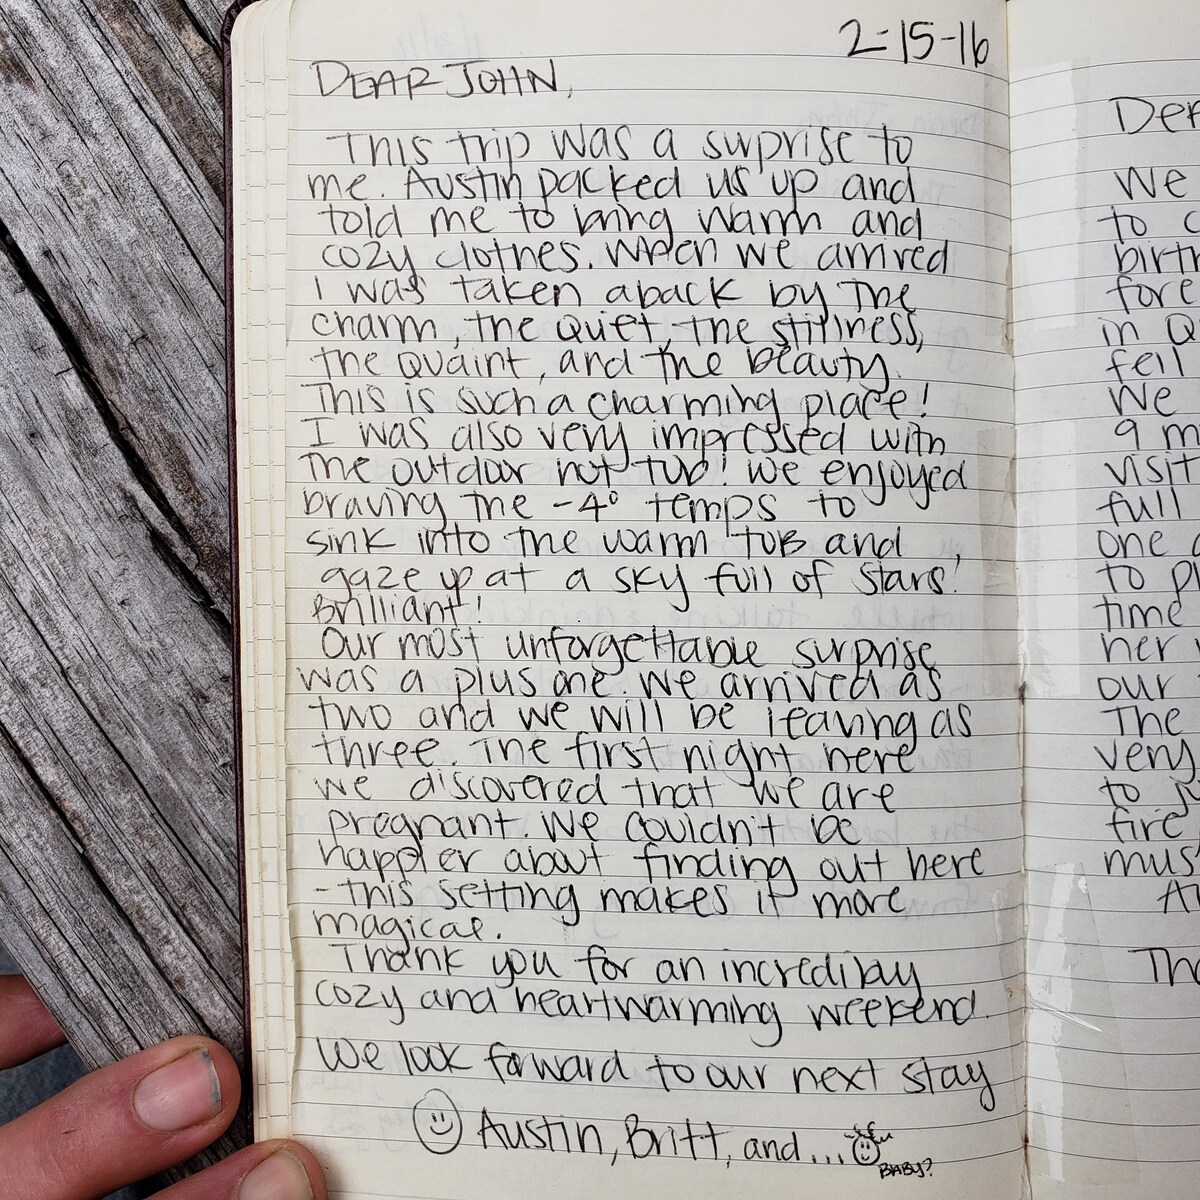 2-15-16
DEAR JOHN,
This trip was a surprise to
me. Austin packed us up and
told me to bring warm and
cozy clothes. When we arrived
I was taken aback by the
charm, the quiet, the stillness,
the quaint, and the beauty.
This is such a charming place!
I was also very impressed with
the outdoor hot tub! We enjoyed
braving the -4° temps to
sink into the warm tub and
gaze up at a sky full of stars!
Brilliant!
Our most unforgettable surprise
was a plus one. We arrived as
two and we will be leaving as
three. The first night here
we discovered that we are
pregnant. We couldn't be
happier about finding out here
- this setting makes it more
magical.
Thank you for an incredibly
cozy and heartwarming weekend.
We look forward to our next stay
Austin, Britt, and...
BABY?
We
to
in
We
visit
full
one
to
time
her
our
The
very
to
fire